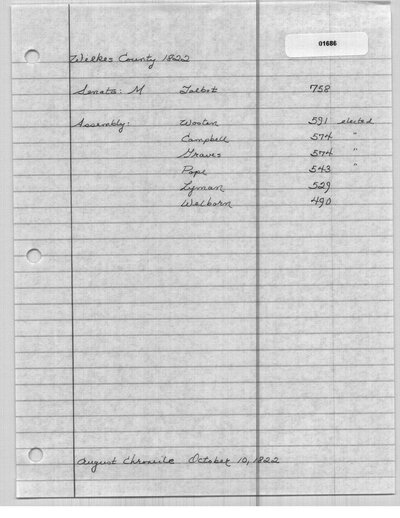 01686
Wilkes County 1822
Senate: M Talbot 758
Assembly: Wooten 591 elected
Campbell 574 "
Graves 574 "
Pope 543 "
Lyman 529
Welborn 490
August Chronicle October 10, 1822